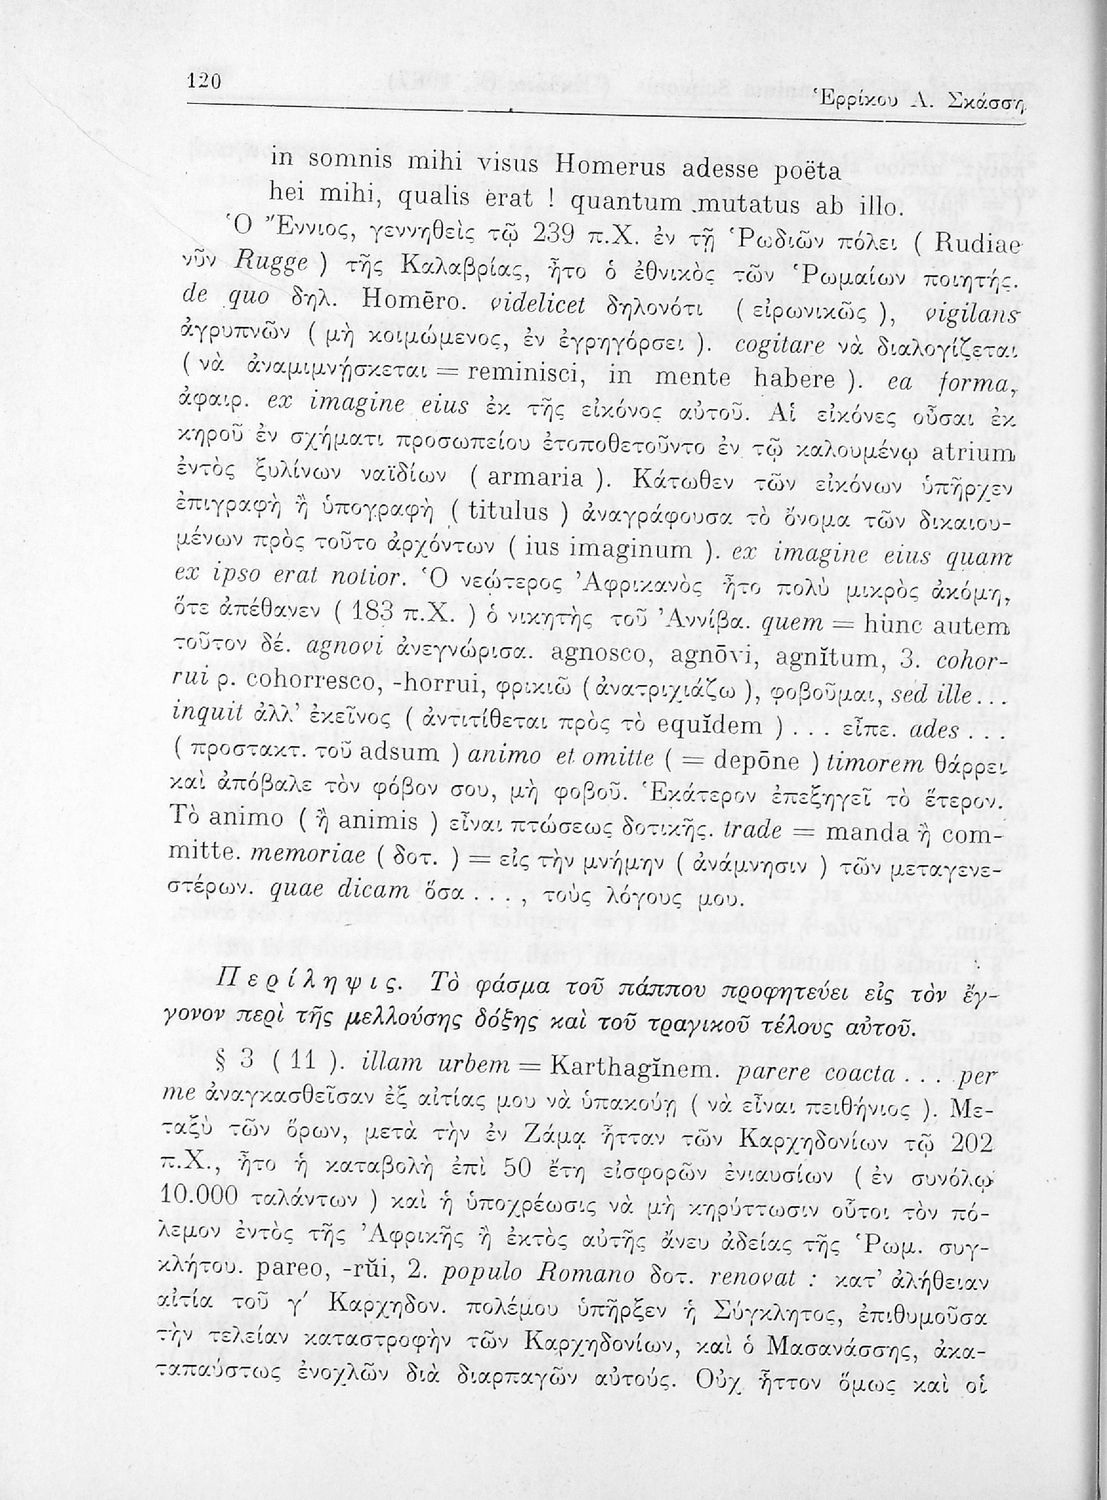 120
Ἑρρίκου Α. Σκάσση
in somnis mihi visus Homerus adesse poëta
hei mihi, qualis erat ! quantum mutatus ab illo.
Ὁ Ἔννιος, γεννηθεὶς τῷ 239 π.Χ. ἐν τῇ Ῥωδιῶν πόλει ( Rudiae
νῦν Rugge ) τῆς Καλαβρίας, ἦτο ὁ ἐθνικὸς τῶν Ῥωμαίων ποιητής.
de quo δηλ. Homēro. videlicet δηλονότι ( εἰρωνικῶς ), vigilans
ἀγρυπνῶν ( μὴ κοιμώμενος, ἐν ἐγρηγόρσει ). cogitare νὰ διαλογίζεται
( νὰ ἀναμιμνῄσκεται = reminisci, in mente habere ). ea forma,
ἀφαιρ. ex imagine eius ἐκ τῆς εἰκόνος αὐτοῦ. Αἱ εἰκόνες οὖσαι ἐκ
κηροῦ ἐν σχήματι προσωπείου ἐτοποθετοῦντο ἐν τῷ καλουμένῳ atrium
ἐντὸς ξυλίνων ναϊδίων ( armaria ). Κάτωθεν τῶν εἰκόνων ὑπῆρχεν
ἐπιγραφὴ ἢ ὑπογραφὴ ( titulus ) ἀναγράφουσα τὸ ὄνομα τῶν δικαιου-
μένων πρὸς τοῦτο ἀρχόντων ( ius imaginum ). ex imagine eius quam
ex ipso erat notior. Ὁ νεώτερος Ἀφρικανὸς ἦτο πολὺ μικρὸς ἀκόμη,
ὅτε ἀπέθανεν ( 183 π.Χ. ) ὁ νικητὴς τοῦ Ἀννίβα. quem = hunc autem
τοῦτον δέ. agnovi ἀνεγνώρισα. agnosco, agnōvi, agnĭtum, 3. cohor-
rui ρ. cohorresco, -horrui, φρικιῶ ( ἀνατριχιάζω ), φοβοῦμαι, sed ille...
inquit ἀλλ’ ἐκεῖνος ( ἀντιτίθεται πρὸς τὸ equĭdem ) . . . εἶπε. ades . . .
( προστακτ. τοῦ adsum ) animo et omitte ( = depōne ) timorem θάρρει
καὶ ἀπόβαλε τὸν φόβον σου, μὴ φοβοῦ. Ἑκάτερον ἐπεξηγεῖ τὸ ἕτερον.
Τὸ animo ( ἢ animis ) εἶναι πτώσεως δοτικῆς. trade = manda ἢ com-
mitte. memoriae ( δοτ. ) = εἰς τὴν μνήμην ( ἀνάμνησιν ) τῶν μεταγενε-
στέρων. quae dicam ὅσα . . . , τοὺς λόγους μου.
Περίληψις. Τὸ φάσμα τοῦ πάππου προφητεύει εἰς τὸν ἔγ-
γονον περὶ τῆς μελλούσης δόξης καὶ τοῦ τραγικοῦ τέλους αὐτοῦ.
§ 3 ( 11 ). illam urbem = Karthagĭnem. parere coacta . . . per
me ἀναγκασθεῖσαν ἐξ αἰτίας μου νὰ ὑπακούῃ ( νὰ εἶναι πειθήνιος ). Με-
ταξὺ τῶν ὅρων, μετὰ τὴν ἐν Ζάμᾳ ἧτταν τῶν Καρχηδονίων τῷ 202
π.Χ., ἦτο ἡ καταβολὴ ἐπὶ 50 ἔτη εἰσφορῶν ἐνιαυσίων ( ἐν συνόλῳ
10.000 ταλάντων ) καὶ ἡ ὑποχρέωσις νὰ μὴ κηρύττωσιν οὗτοι τὸν πό-
λεμον ἐντὸς τῆς Ἀφρικῆς ἢ ἐκτὸς αὐτῆς ἄνευ ἀδείας τῆς Ῥωμ. συγ-
κλήτου. pareo, -rŭi, 2. populo Romano δοτ. renovat : κατ’ ἀλήθειαν
αἰτία τοῦ γ′ Καρχηδον. πολέμου ὑπῆρξεν ἡ Σύγκλητος, ἐπιθυμοῦσα
τὴν τελείαν καταστροφὴν τῶν Καρχηδονίων, καὶ ὁ Μασανάσσης, ἀκα-
ταπαύστως ἐνοχλῶν διὰ διαρπαγῶν αὐτούς. Οὐχ ἧττον ὅμως καὶ οἱ